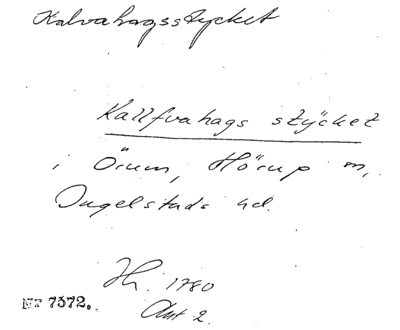 Kalvahagsstycket
Kallfvahags stÿcket
i Örum, Hörup m,
Ingelstads hd.
Hh. 1780
Akt 2.
NT 7372.